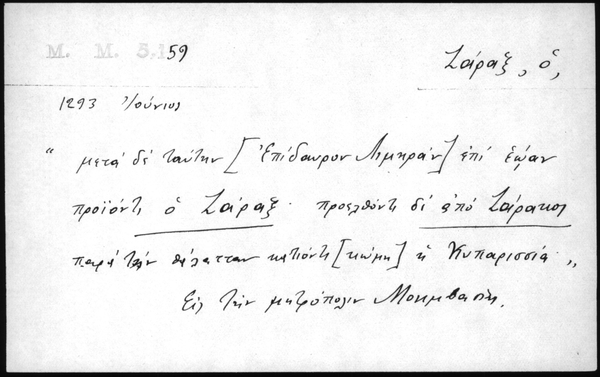 M. M. 5.1 59
Ζάραξ, ὁ,
1293 Ἰούνιος
“ μετά δέ ταύτην [Ἐπίδαυρον Λιμηράν] ἐπί ἑῴαν
προϊόντι ὁ Ζάραξ· προελθόντι δέ ἀπό Ζάρακος
παρά τήν θάλατταν κατιόντι [κώμη] ἡ Κυπαρισσία „
Εἰς τήν μητρόπολιν Μονεμβασίας.